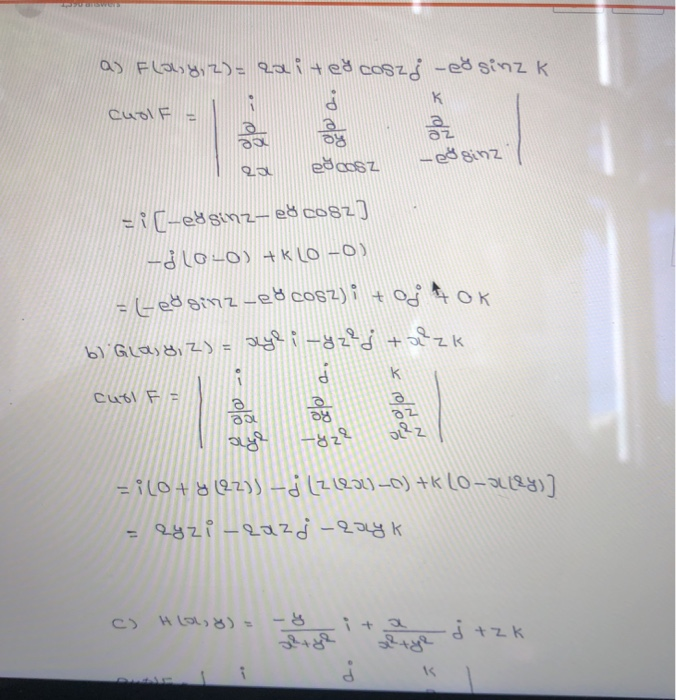 a) F(x,y,z) = 2x i + e^y cosz j - e^y sinz k
i j k
Curl F = | ∂/∂x ∂/∂y ∂/∂z |
2x e^y cosz -e^y sinz
= i[-e^y sinz - e^y cosz]
-j(0-0) + k(0-0)
= (-e^y sinz - e^y cosz)i + 0j + 0k
b) G(x,y,z) = xy² i - yz² j + x²z k
i j k
Curl F = | ∂/∂x ∂/∂y ∂/∂z |
xy² -yz² x²z
= i(0 + y(2z)) - j(z(2x)-0) + k(0-x(2y)]
= 2yzi - 2xzj - 2xyk
c) H(x,y) = -y/(x²+y²) i + x/(x²+y²) j + zk
i j k